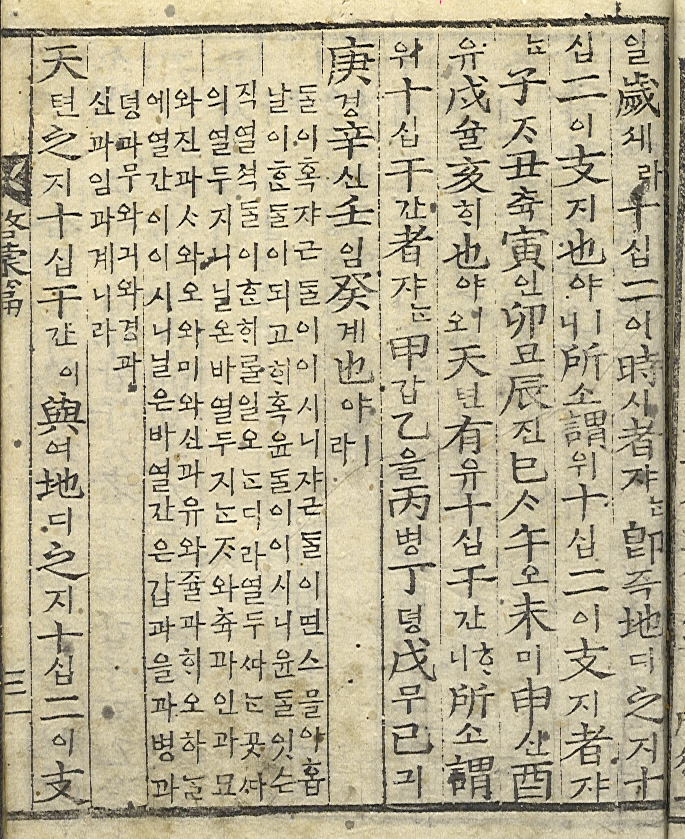 일歲세라十십二이時시者쟈ᄂᆞᆫ卽즉地디之지十
십二이支지也야ㅣ니所소謂위十십二이支지者쟈
ᄂᆞᆫ子ᄌᆞ丑츅寅인卯묘辰진巳ᄉᆞ午오未미申신酉
유戌슐亥ᄒᆡ也야ㅣ오天텬有유十십干간ᄒᆞ니所소謂
위十십干간者쟈ᄂᆞᆫ甲갑乙을丙병丁뎡戊무己긔
庚경辛신壬임癸계也야ㅣ라
둘이혹쟈근둘이이시니쟈근둘이면스믈아홉
날이ᄒᆞᆫ둘이되고ᄒᆡ혹윤둘이이시니윤둘잇ᄂᆞᆫ
직열셕둘이ᄒᆞᆫᄒᆡ롤일오ᄂᆞᆫ디라열두ᄯᅢᄂᆞᆫ곳ᄯᅡ
의열두지니닐온바열두지ᄂᆞᆫᄌᆞ와츅과인과묘
와진과ᄉᆞ와오와미와신과유와슐과ᄒᆡ오하ᄂᆞᆯ
에열간이이시니닐은바열간은갑과을과병과
뎡과무와긔와경과
신과임과계니라
天텬之지十십干간이與여地디之지十십二이支
啓蒙篇 三